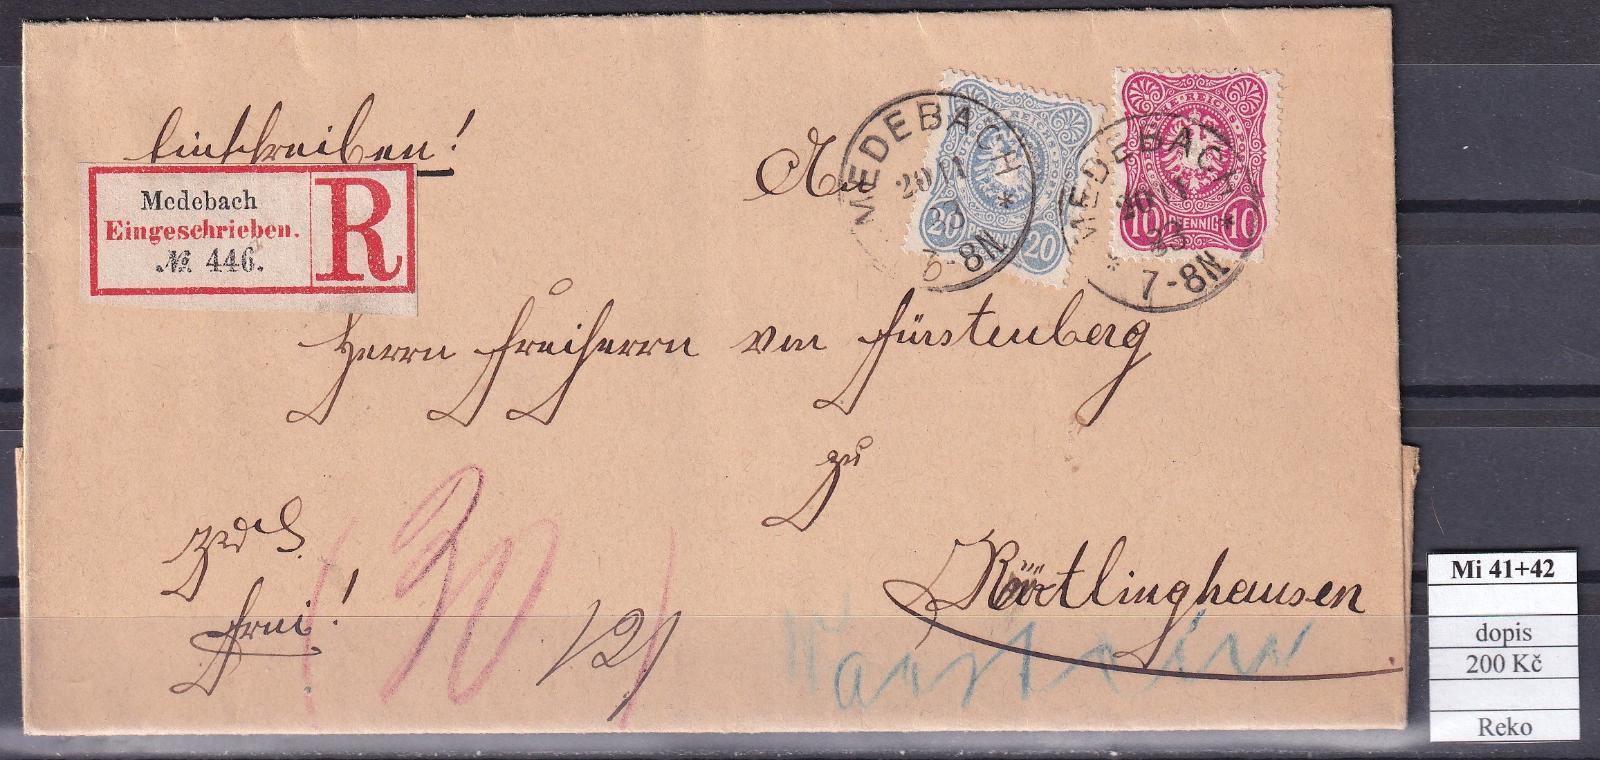 Einschreiben!
Medebach
Eingeschrieben.
№ 446.
R
An
MEDEBACH
20 11
83
-8N
*
20 PFENNIG 20
MEDEBACH
20 11
83
7-8N
* *
10 PFENNIG 10
Herrn Freiherrn von Fürstenberg
zu
Körtlinghausen
frei!
30
/2/
Warstein
Mi 41+42
dopis
200 Kč
Reko